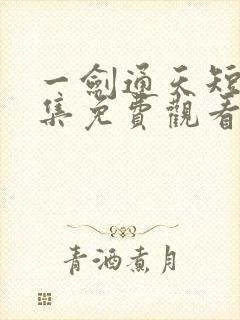 一劍通天短
集免費觀看
青酒煮月